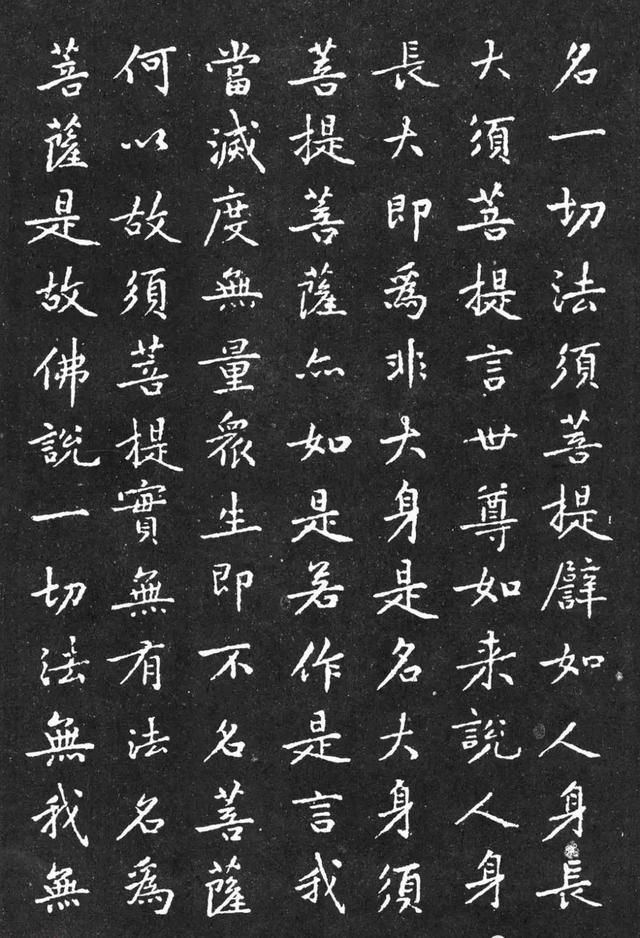 名一切法須菩提譬如人身長
大須菩提言世尊如来說人身
長大即為非大身是名大身須
菩提菩薩亦如是若作是言我
當滅度無量眾生即不名菩薩
何以故須菩提實無有法名為
菩薩是故佛說一切法無我無